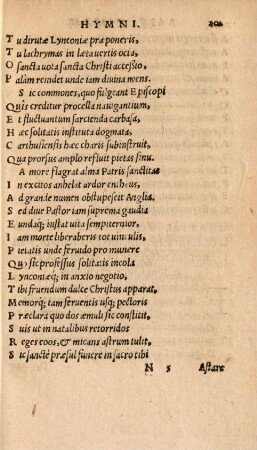 HYMNI.
T u dirutæ Lyntoniæ præponeris,
T u lachrymas in læta uertis ocia,
O sancta uota sancta Christi accessio,
P alàm renidet unde tam diuina mens.
S ic commones, quo fulgeant Episcopi
Q uis creditur procella nauigantium,
E t fluctuantum sarcienda carbasa,
H æc solitatis instituta dogmata,
C arthusiensis hæc charis subinstruit,
Q ua prorsus amplo refluit pietas sinu.
A more flagrat alma Patris sanctitas
I n excitos anhelat ardor enthëus,
A d grande numen obstupescit Anglia.
S ed diue Pastor tam suprema gaudia
E undaq; instat uita sempiternior.
I am morte liberaberis tot uinculis,
P ietatis unde feruido pro munere
Q uò sic professus solitatis incola
L ynconiæq; in anxio negotio,
T ibi fruendum dulce Christus apparat,
M emorq; tam feruentis usq; pectoris
P ræclara quo dos æmuli sic constitit,
S uis ut in natalibus retorridos
R eges eoos, & micans astrum tulit,
S ic sanctè præsul funere in sacro tibi
N 5 Astare